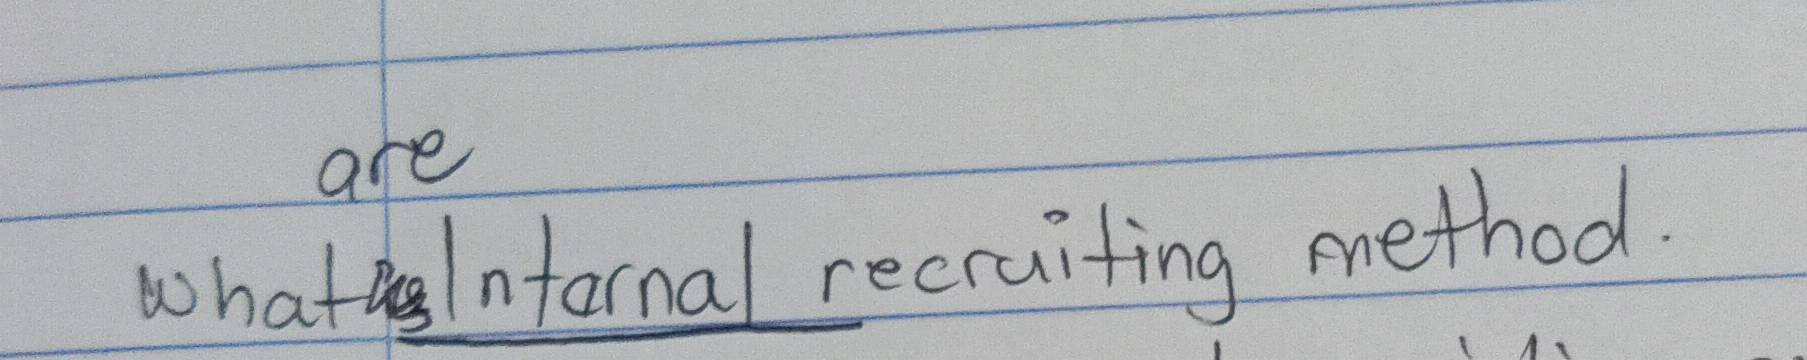 are
what Intarnal recruiting method.